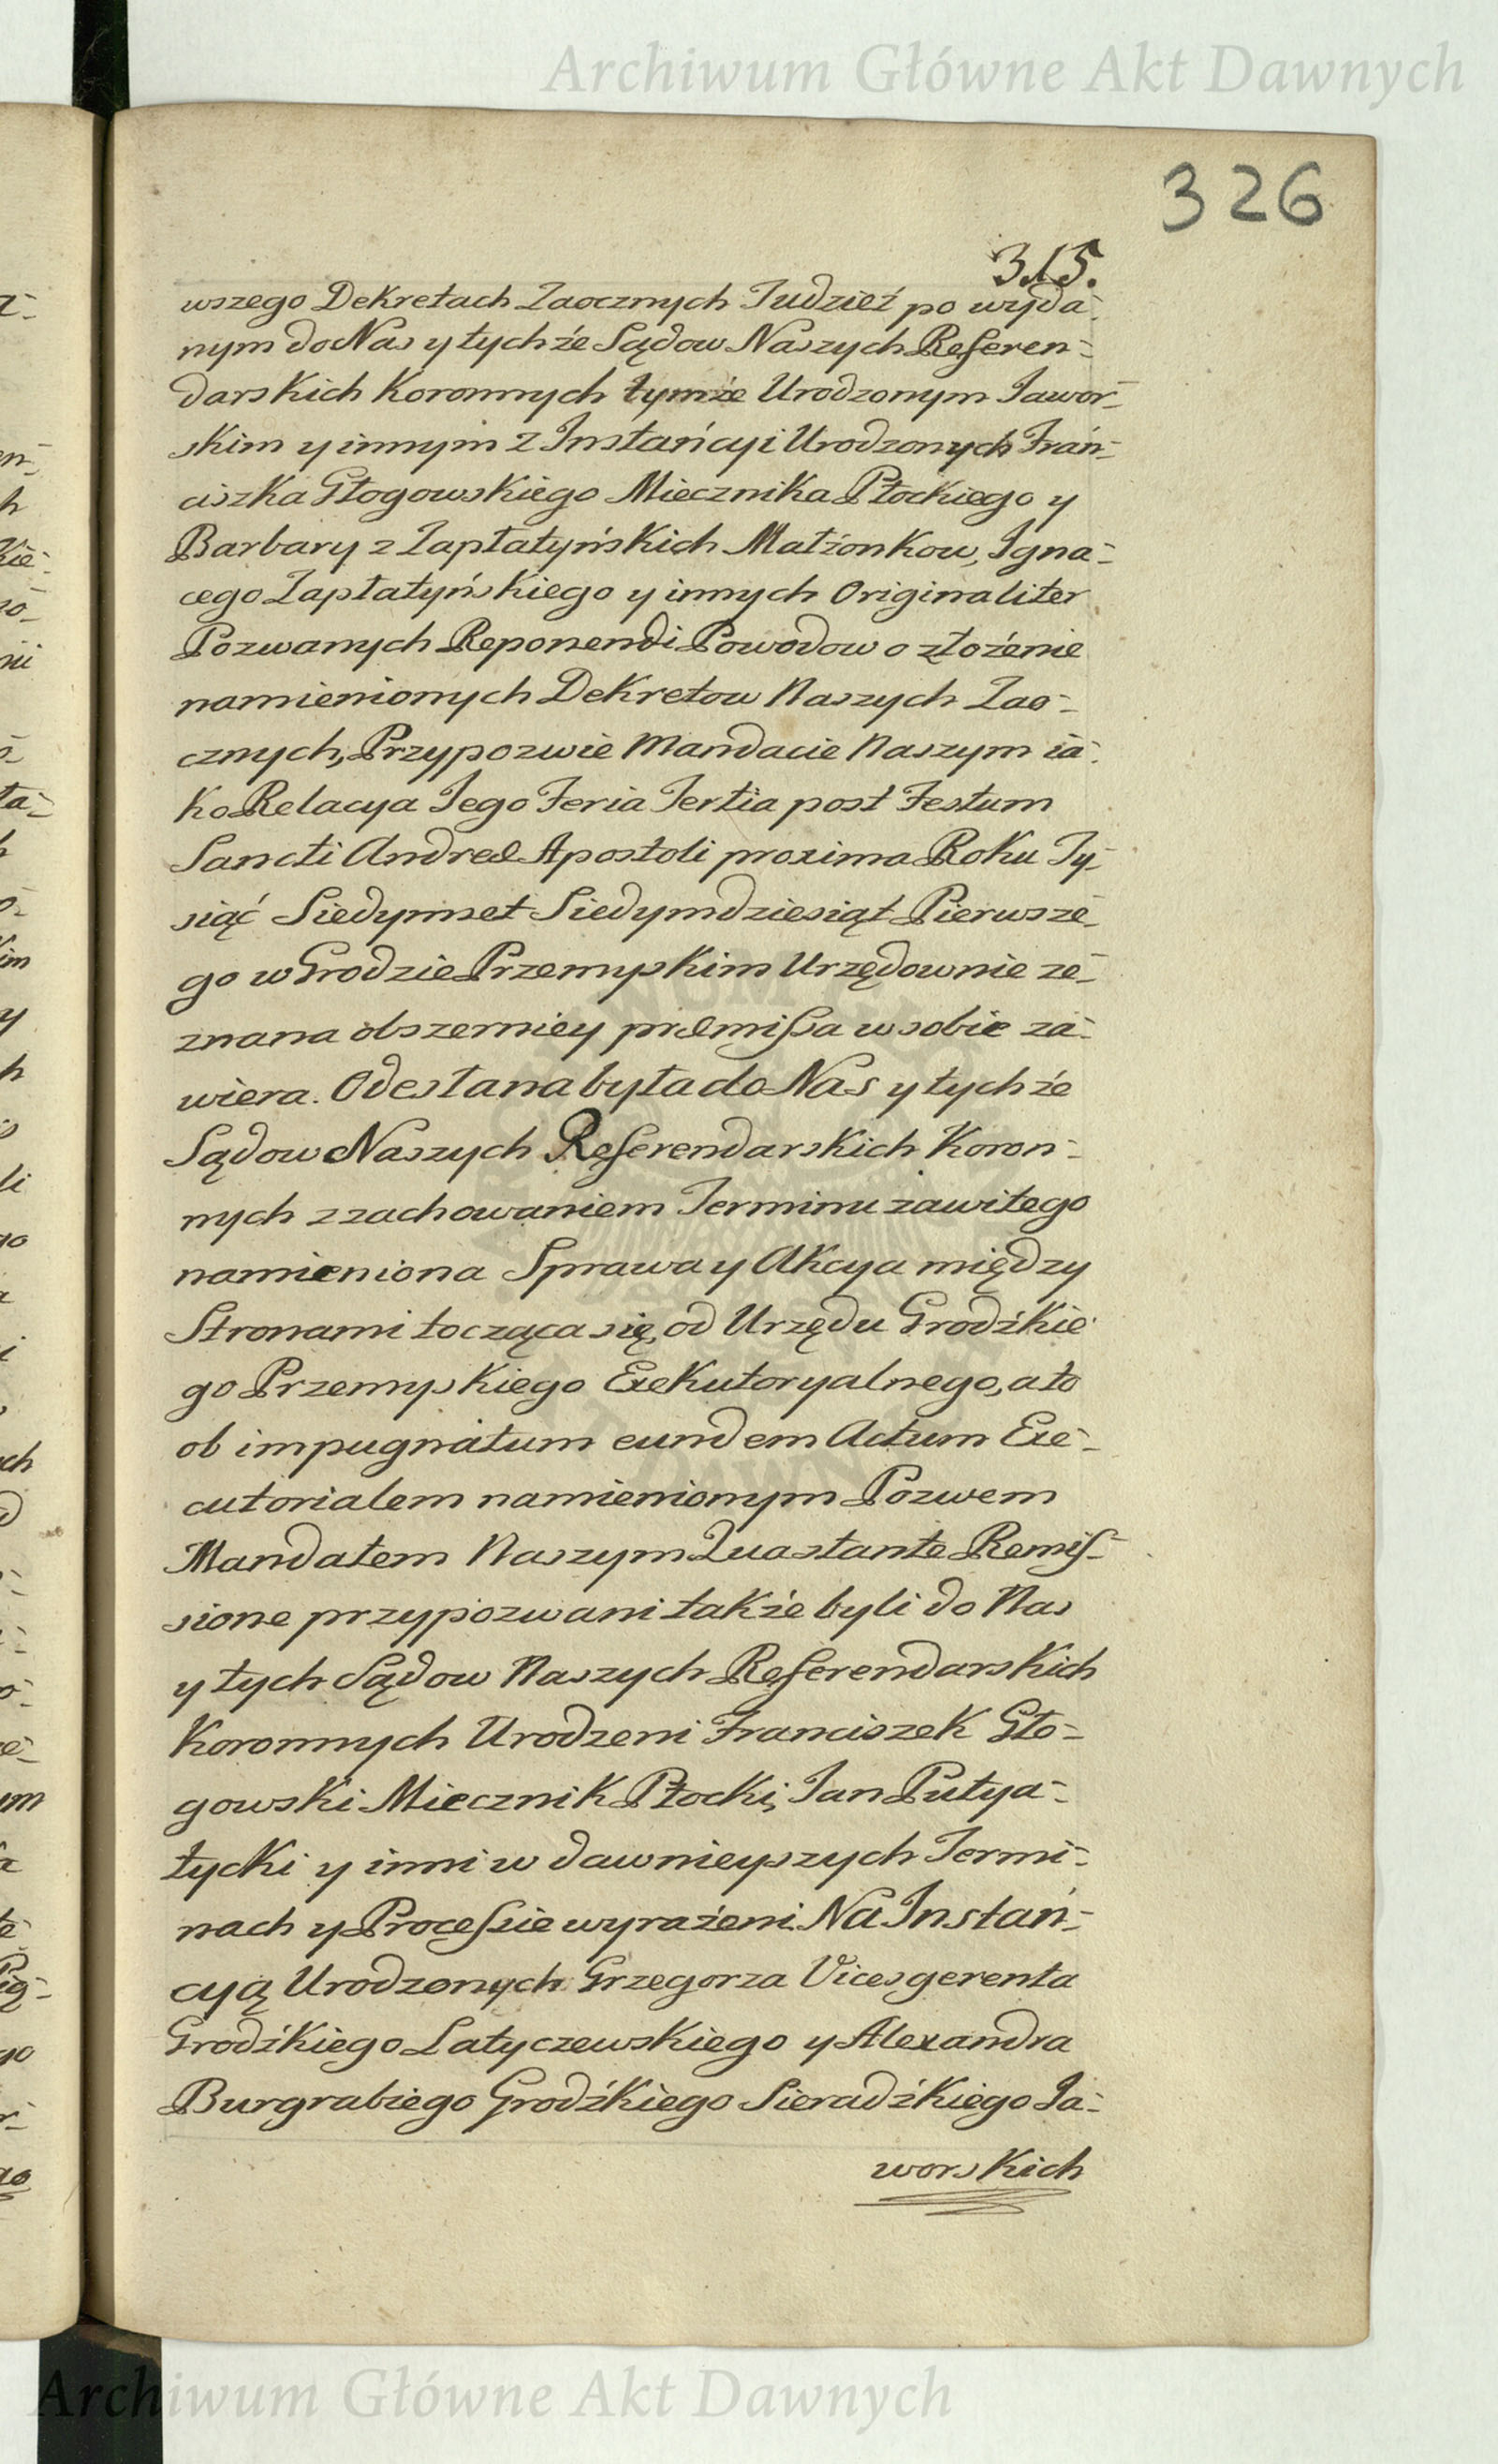 Archiwum Główne Akt Dawnych
326
315.
wszego Dekretach Zaocznych Tudzież po wyda-
nym do Nas y tychże Sądow Naszych Referen-
darskich Koronnych tymże Urodzonym Jawor-
skim y innym z Instańcyi Urodzonych Frań-
ciszka Głogowskiego Miecznika Płockiego y
Barbary z Zapłatyńskich Małżonkow, Igna-
cego Zapłatyńskiego y innych Originaliter
Pozwanych Reponendi Powodow o złożenie
namienionych Dekretow Naszych Zao-
cznych, Przypozwie Mandacie Naszym ia-
ko Relacya Jego Feria Tertia post Festum
Sancti Andreæ Apostoli proxima Roku Ty-
siąć Siedymset Siedymdziesiąt Pierwsze-
go w Grodzie Przemyskim Urzędownie ze-
znana obszerniey præmissa w sobie za-
wiera. Odesłana była do Nas y tychże
Sądow Naszych Referendarskich Koron-
nych z zachowaniem Terminu zawitego
namieniona Sprawa y Akcya między
Stronami tocząca się, od Urzędu Grodźkie-
go Przemyskiego Exekutoryalnego, a to
ob impugnatum eundem Actum Exe-
cutorialem namienionym Pozwem
Mandatem Naszym Quastante Remis-
sione przypozwani także byli do Nas
y tych Sądow Naszych Referendarskich
Koronnych Urodzeni Franciszek Gło-
gowski Miecznik Płocki, Jan Putya-
tycki y inni w dawnieyszych Termi-
nach y Processie wyrażeni. Na Instań-
cyą Urodzonych Grzegorza Vicesgerenta
Grodźkiego Latyczewskiego y Alexandra
Burgrabiego Grodźkiego Sieradźkiego Ja-
worskich
Archiwum Główne Akt Dawnych